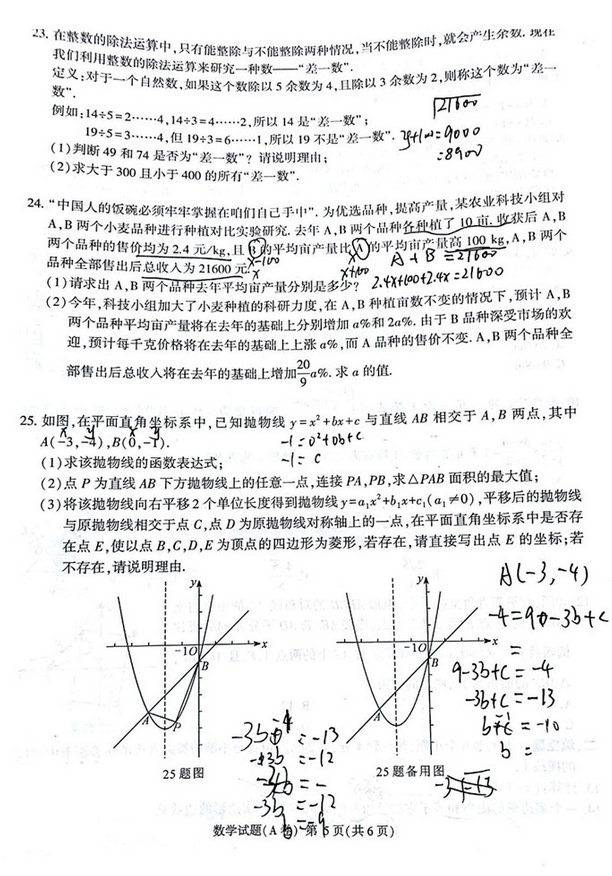 23. 在整数的除法运算中,只有能整除与不能整除两种情况,当不能整除时,就会产生余数. 现在
我们利用整数的除法运算来研究一种数——“差一数”.
定义:对于一个自然数,如果这个数除以 5 余数为 4,且除以 3 余数为 2,则称这个数为“差一
数”.
例如:14÷5=2……4,14÷3=4……2,所以 14 是“差一数”;
19÷5=3……4,但 19÷3=6……1,所以 19 不是“差一数”.
(1)判断 49 和 74 是否为“差一数”? 请说明理由;
(2)求大于 300 且小于 400 的所有“差一数”.
21600
=9000
=8900
24. “中国人的饭碗必须牢牢掌握在咱们自己手中”. 为优选品种,提高产量,某农业科技小组对
A,B 两个小麦品种进行种植对比实验研究. 去年 A,B 两个品种各种植了 10 亩. 收获后 A,B
两个品种的售价均为 2.4 元/kg,且 B 的平均亩产量比 A 的平均亩产量高 100 kg,A,B 两个
品种全部售出后总收入为 21600 元.
x-100
x
x+100
A+B=21600
(1)请求出 A,B 两个品种去年平均亩产量分别是多少?
2.4x+100+2.4x=21600
(2)今年,科技小组加大了小麦种植的科研力度,在 A,B 种植亩数不变的情况下,预计 A,B
两个品种平均亩产量将在去年的基础上分别增加 a%和 2a%. 由于 B 品种深受市场的欢
迎,预计每千克价格将在去年的基础上上涨 a%,而 A 品种的售价不变. A,B 两个品种全
部售出后总收入将在去年的基础上增加20/9 a%. 求 a 的值.
25. 如图,在平面直角坐标系中,已知抛物线 y=x²+bx+c 与直线 AB 相交于 A,B 两点,其中
x y x y
A(-3,-4),B(0,-1).
-1=0²+0b+c
-1=c
(1)求该抛物线的函数表达式;
(2)点 P 为直线 AB 下方抛物线上的任意一点,连接 PA,PB,求△PAB 面积的最大值;
(3)将该抛物线向右平移 2 个单位长度得到抛物线 y=a₁x²+b₁x+c₁(a₁≠0),平移后的抛物线
与原抛物线相交于点 C,点 D 为原抛物线对称轴上的一点,在平面直角坐标系中是否存
在点 E,使以点 B,C,D,E 为顶点的四边形为菱形,若存在,请直接写出点 E 的坐标;若
不存在,请说明理由.
A(-3,-4)
-4=9a-3b+c
=
9-3b+c=-4
-3b+c=-13
b+c=-10
b=
y
x
-1
O
B
A
P
25 题图
y
x
-1
O
B
25 题备用图
=-13
=-12
-3b=-12
数学试题(A卷) 第 5 页(共 6 页)